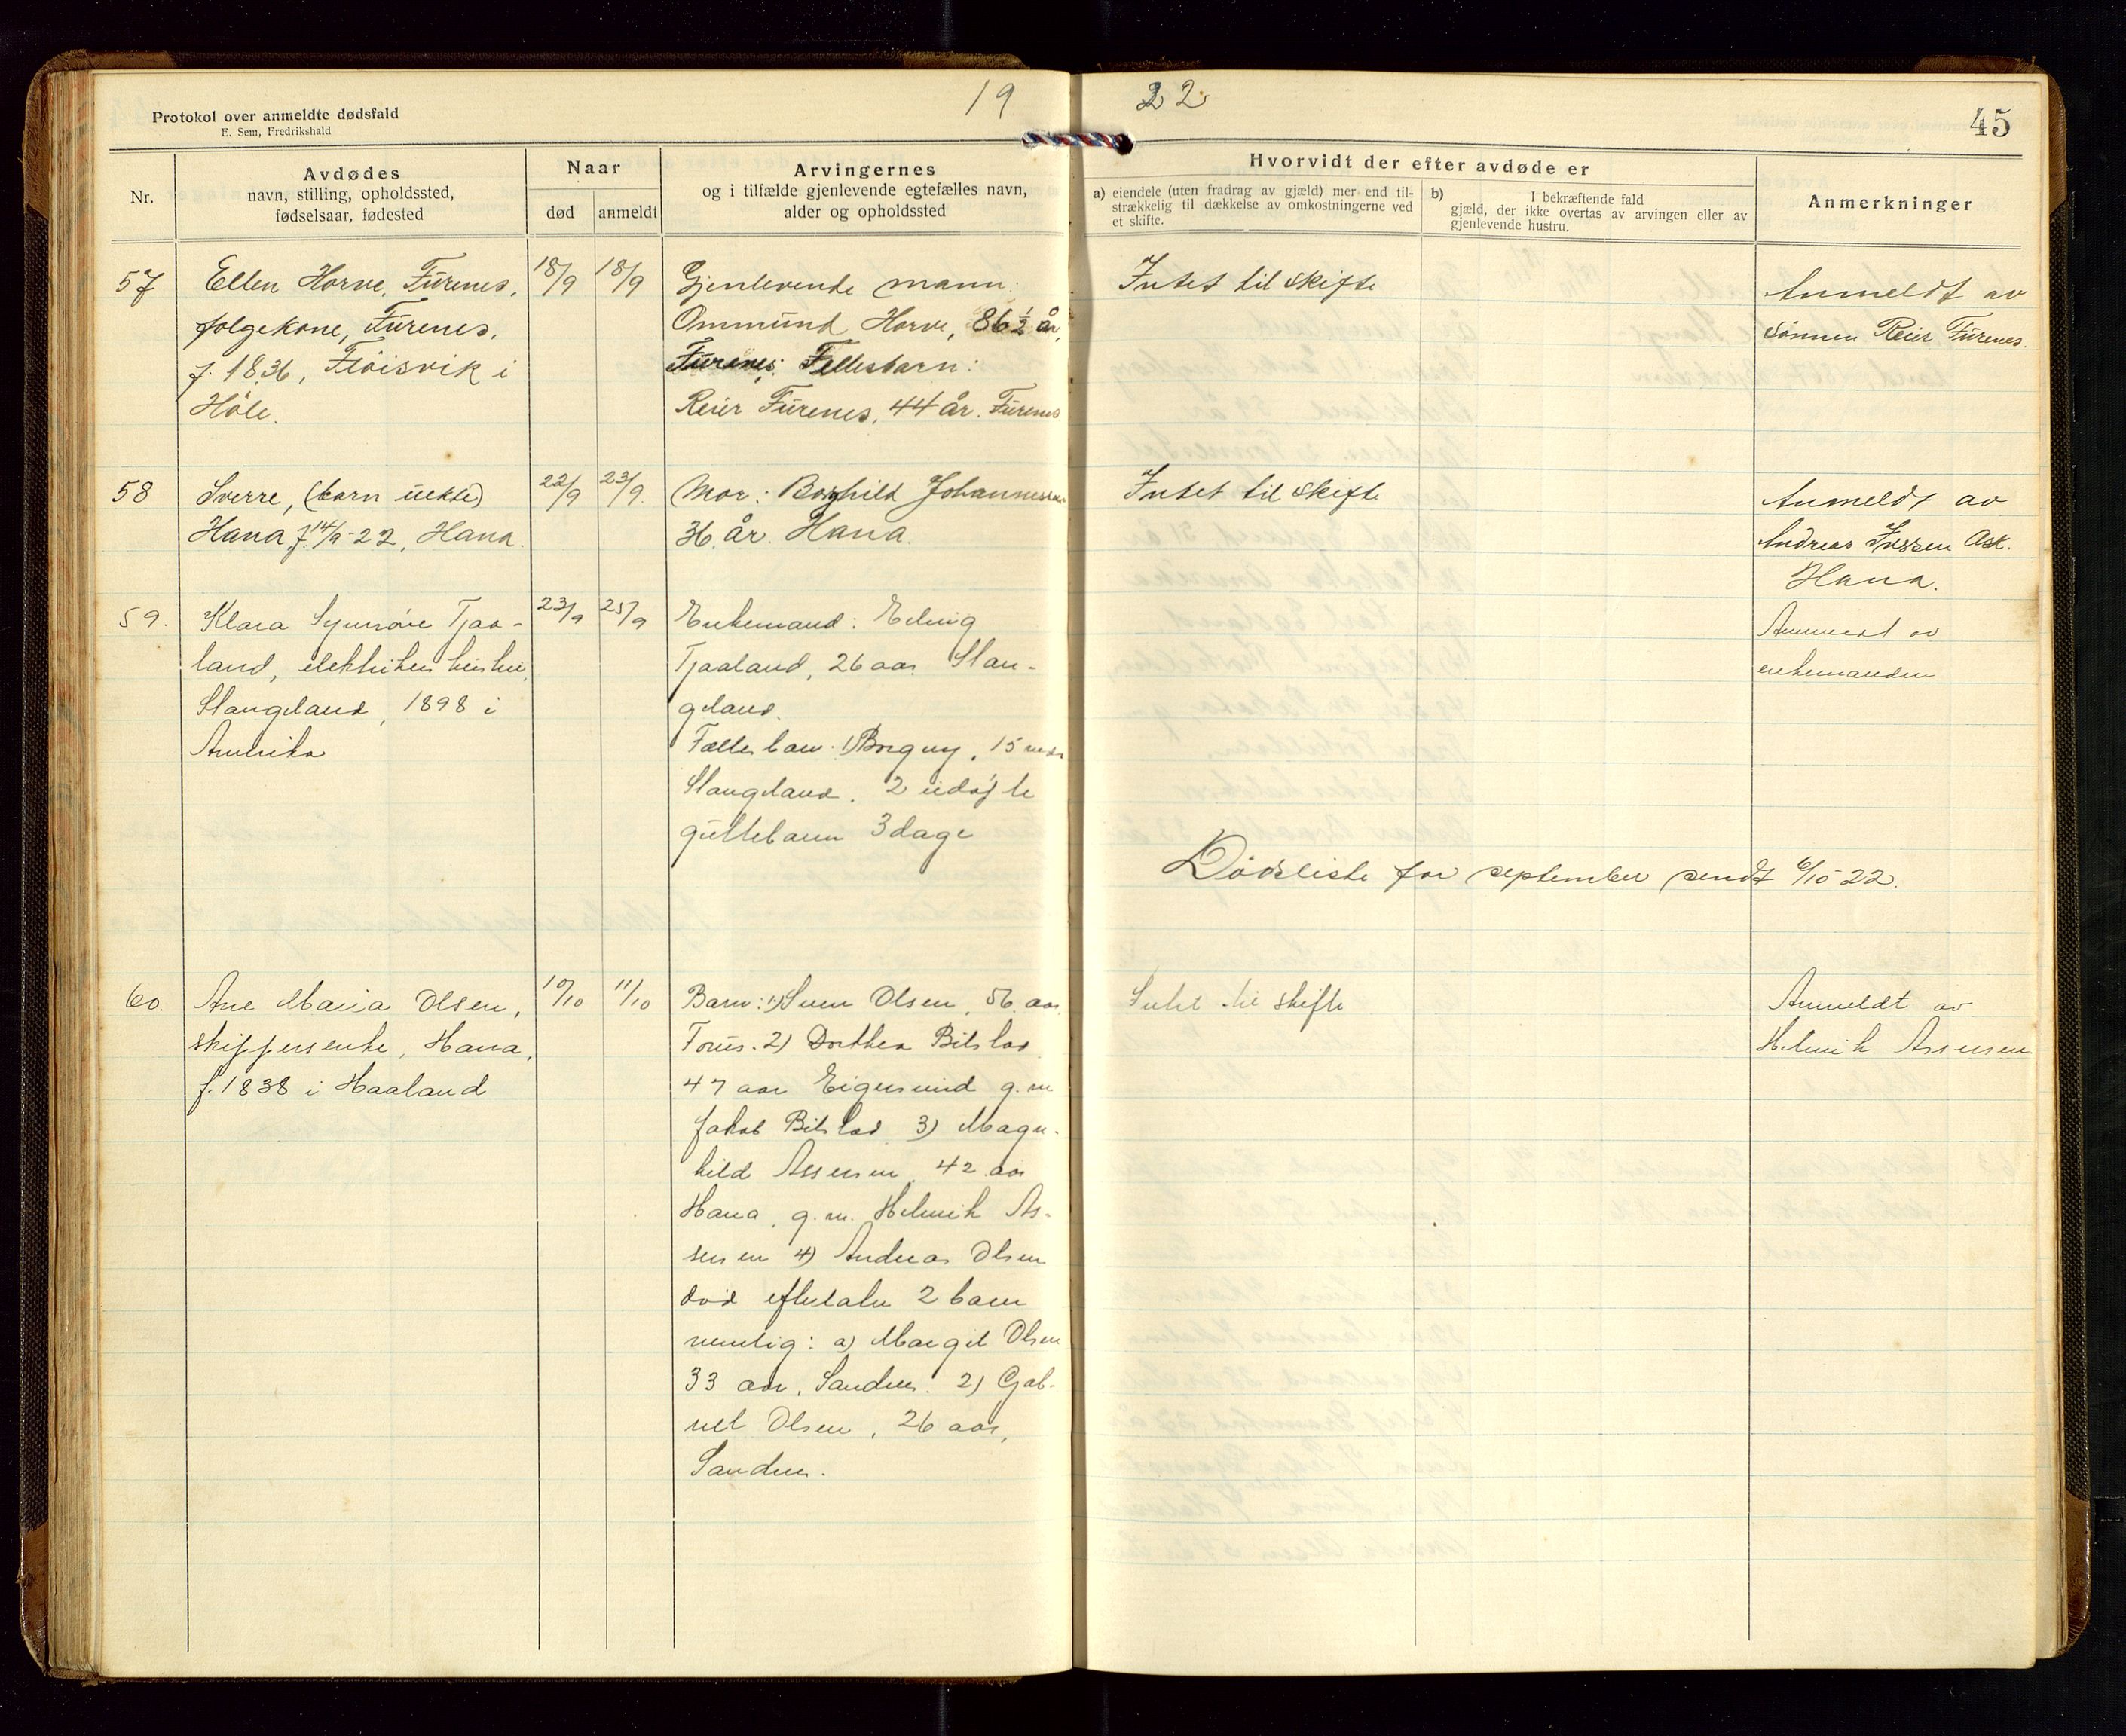 Protokol over anmeldte dødsfald
E. Sem, Fredrikshald
19
22
45
Nr.
Avdødes
navn, stilling, opholdssted,
fødselsaar, fødested
Naar
død
anmeldt
Arvingernes
og i tilfælde gjenlevende egtefælles navn,
alder og opholdssted
Hvorvidt der efter avdøde er
a) eiendele (uten fradrag av gjæld) mer end til-
strækkelig til dækkelse av omkostningerne ved
et skifte.
b) I bekræftende fald
gjæld, der ikke overtas av arvingen eller av
gjenlevende hustru.
Anmerkninger
57
Ellen Horve, Furenes,
folgekone, Furenes,
f. 1836, Fløisvik i
Høle.
18/9
18/9
Gjenlevende mann:
Ommund Horve, 86 ½ år,
Furenes. Fellesbarn:
Reier Furenes, 44 år. Furenes
Intet til skifte
Anmeldt av
sønnen Reier Furenes.
58
Sverre, (barn uekte)
Hana f. 14/9-22, Hana.
22/9
23/9.
Mor: Borghild Johannessen
36 år Hana.
Intet til skifte
Anmeldt av
Andreas Ask.
Hana.
59.
Klara Synnøve Tjaa-
land, elektrikers hustru,
Slangeland, 1898 i
Amerika
23/9
25/9
Enkemand: Erling
Tjaaland, 26 aar Slan-
geland.
Fællesbarn: 1) Borgny, 15 mdr
Slangeland. 2 udøpte
guttebarn 3 dage
Anmeldt av
enkemanden
Dødsliste for september sendt 6/10 22.
60.
Ane Maria Olsen,
skippersenke, Hana,
f. 1838 i Haaland
10/10
11/10
Barn: 1) Sven Olsen, 56 aar
Torus. 2) Dorthea Bilstad
47 aar Eigersund g. m
Jakob Bilstad 3) Magn-
hild Assersen, 42 aar
Hana, g. m. Helmik As-
sersen 4) Andreas Olsen
død efterlater 2 barn
nemlig: a) Margit Olsen
33 aar, Sandnes. 2) Gab-
riel Olsen, 26 aar,
Sandnes.
Intet til skifte
Anmeldt av
Helmik Assersen